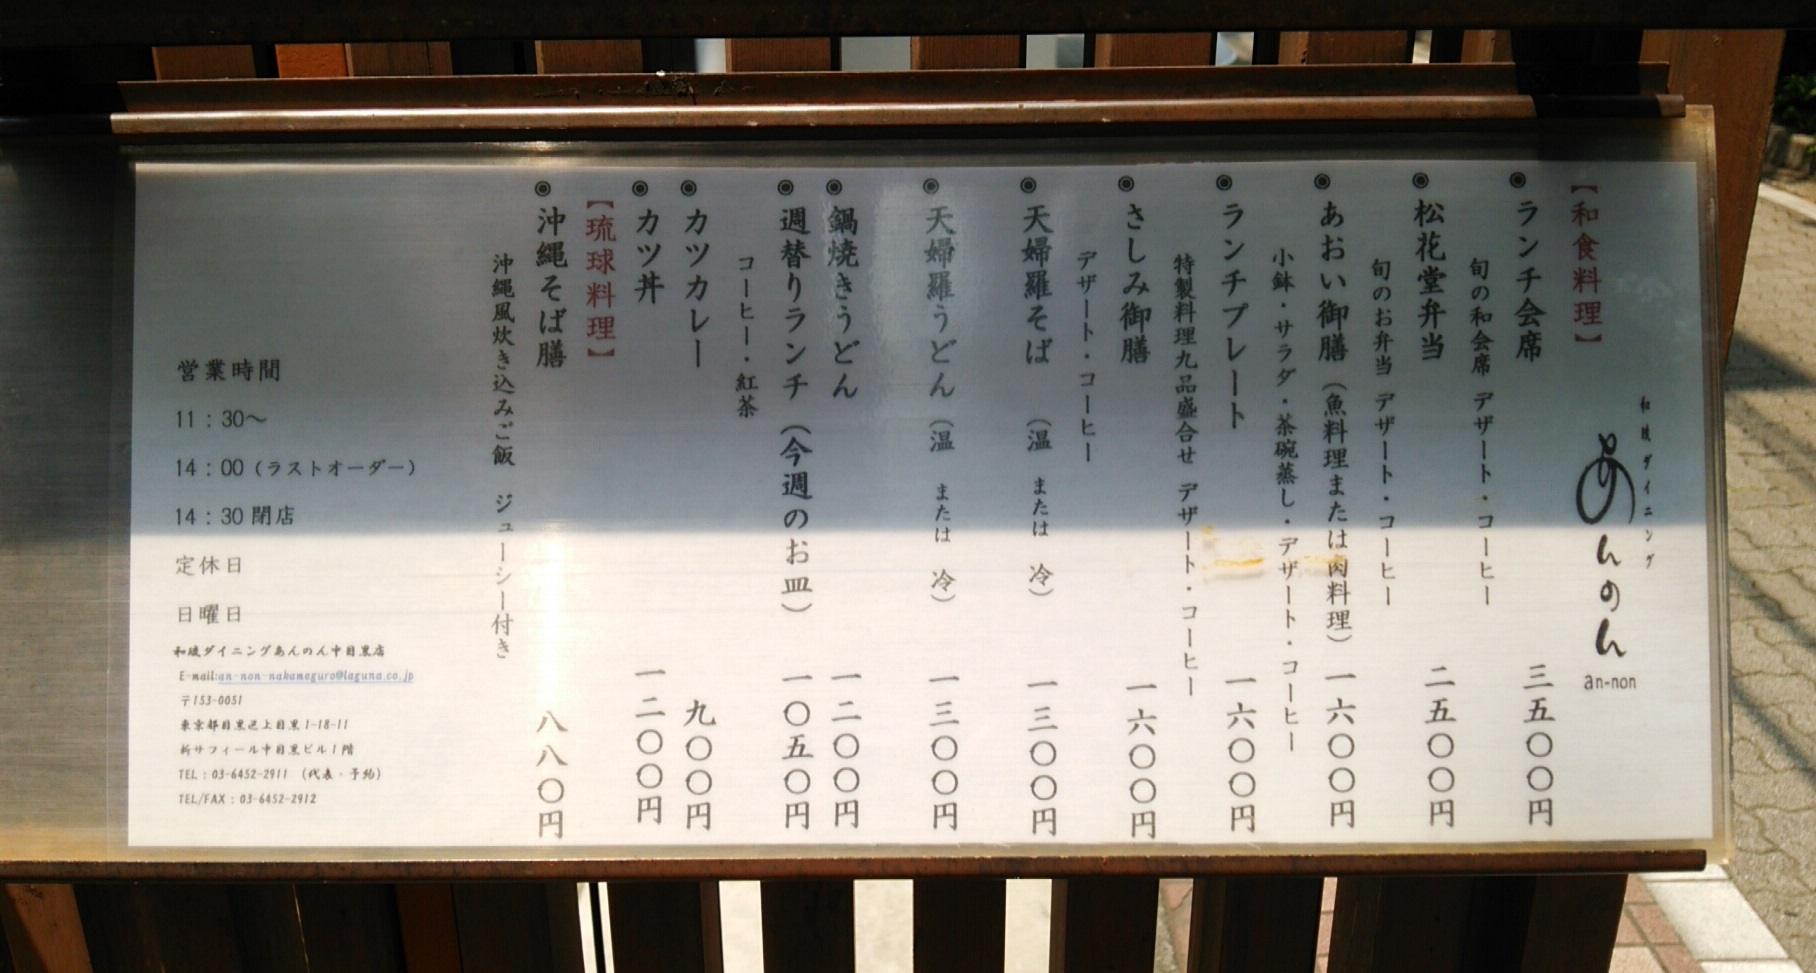 和琉ダイニング
あんのん
an-non
【和食料理】
◉ランチ会席 三五〇〇円
旬の和会席 デザート・コーヒー
◉松花堂弁当 二五〇〇円
旬のお弁当 デザート・コーヒー
◉あおい御膳(魚料理または肉料理) 一六〇〇円
小鉢・サラダ・茶碗蒸し・デザート・コーヒー
◉ランチプレート 一六〇〇円
特製料理九品盛合せ デザート・コーヒー
◉さしみ御膳 一六〇〇円
デザート・コーヒー
◉天婦羅そば (温 または 冷) 一三〇〇円
◉天婦羅うどん (温 または 冷) 一三〇〇円
◉鍋焼きうどん 一二〇〇円
◉週替りランチ(今週のお皿) 一〇五〇円
コーヒー・紅茶
◉カツカレー 九〇〇円
◉カツ丼 一二〇〇円
【琉球料理】
◉沖縄そば膳 八八〇円
沖縄風炊き込みご飯 ジューシー付き
営業時間
11:30〜
14:00(ラストオーダー)
14:30 閉店
定休日
日曜日
和琉ダイニングあんのん中目黒店
E-mail:an-non-nakameguro@laguna.co.jp
〒153-0051
東京都目黒区上目黒1-18-11
新サフィール中目黒ビル1階
TEL:03-6452-2911 (代表・予約)
TEL/FAX:03-6452-2912